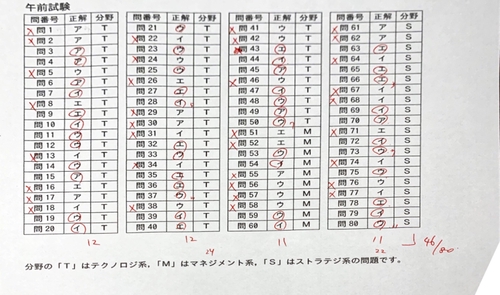 午前試験
問番号 正解 分野
問 1 ア T
問 2 T
問 3 ア T
問 4 ア T
問 5 ウ T
問 6 エ T
問 7 イ T
問 8 エ T
問 9 エ T
問 10 イ T
問 11 ウ T
問 12 ウ T
問 13 イ T
問 14 ウ T
問 15 ア T
問 16 エ T
問 17 ア T
問 18 イ T
問 19 ウ T
問 20 イ T
12
問番号 正解 分野
問 21 ウ T
問 22 イ T
問 23 ウ T
問 24 ウ T
問 25 ウ T
問 26 エ T
問 27 エ T
問 28 イ T
問 29 ア T
問 30 ア T
問 31 イ T
問 32 エ T
問 33 ウ T
問 34 イ T
問 35 ア T
問 36 エ T
問 37 ウ T
問 38 イ T
問 39 T
問 40 T
12
24
問番号 正解 分野
問 41 ウ T
問 42 ウ T
問 43 エ T
問 44 イ T
問 45 ア T
問 46 ウ T
問 47 イ T
問 48 ウ T
問 49 T
問 50 ウ T
問 51 エ M
問 52 エ M
問 53 ウ M
問 54 イ M
問 55 ア M
問 56 ウ M
問 57 ウ M
問 58 ウ M
問 59 ウ M
問 60 イ M
11
問番号 正解 分野
問 61 ア S
問 62 ア S
問 63 エ S
問 64 イ S
問 65 エ S
問 66 エ S
問 67 イ S
問 68 イ S
問 69 イ S
問 70 ア S
問 71 エ S
問 72 イ S
問 73 ウ S
問 74 イ S
問 75 ウ S
問 76 ウ S
問 77 ウ S
問 78 エ S
問 79 エ S
問 80 ウ S
11
22
46/80
分野の「T」はテクノロジ系，「M」はマネジメント系，「S」はストラテジ系の問題です。